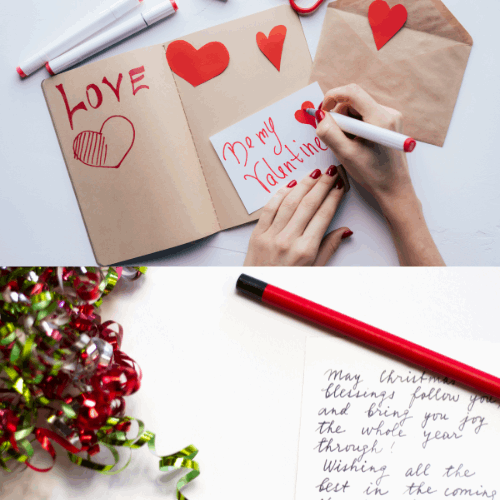 LOVE
Be my
Valentine
May Christmas
blessings follow you
and bring you joy
the whole year
through!
Wishing all the
best in the coming